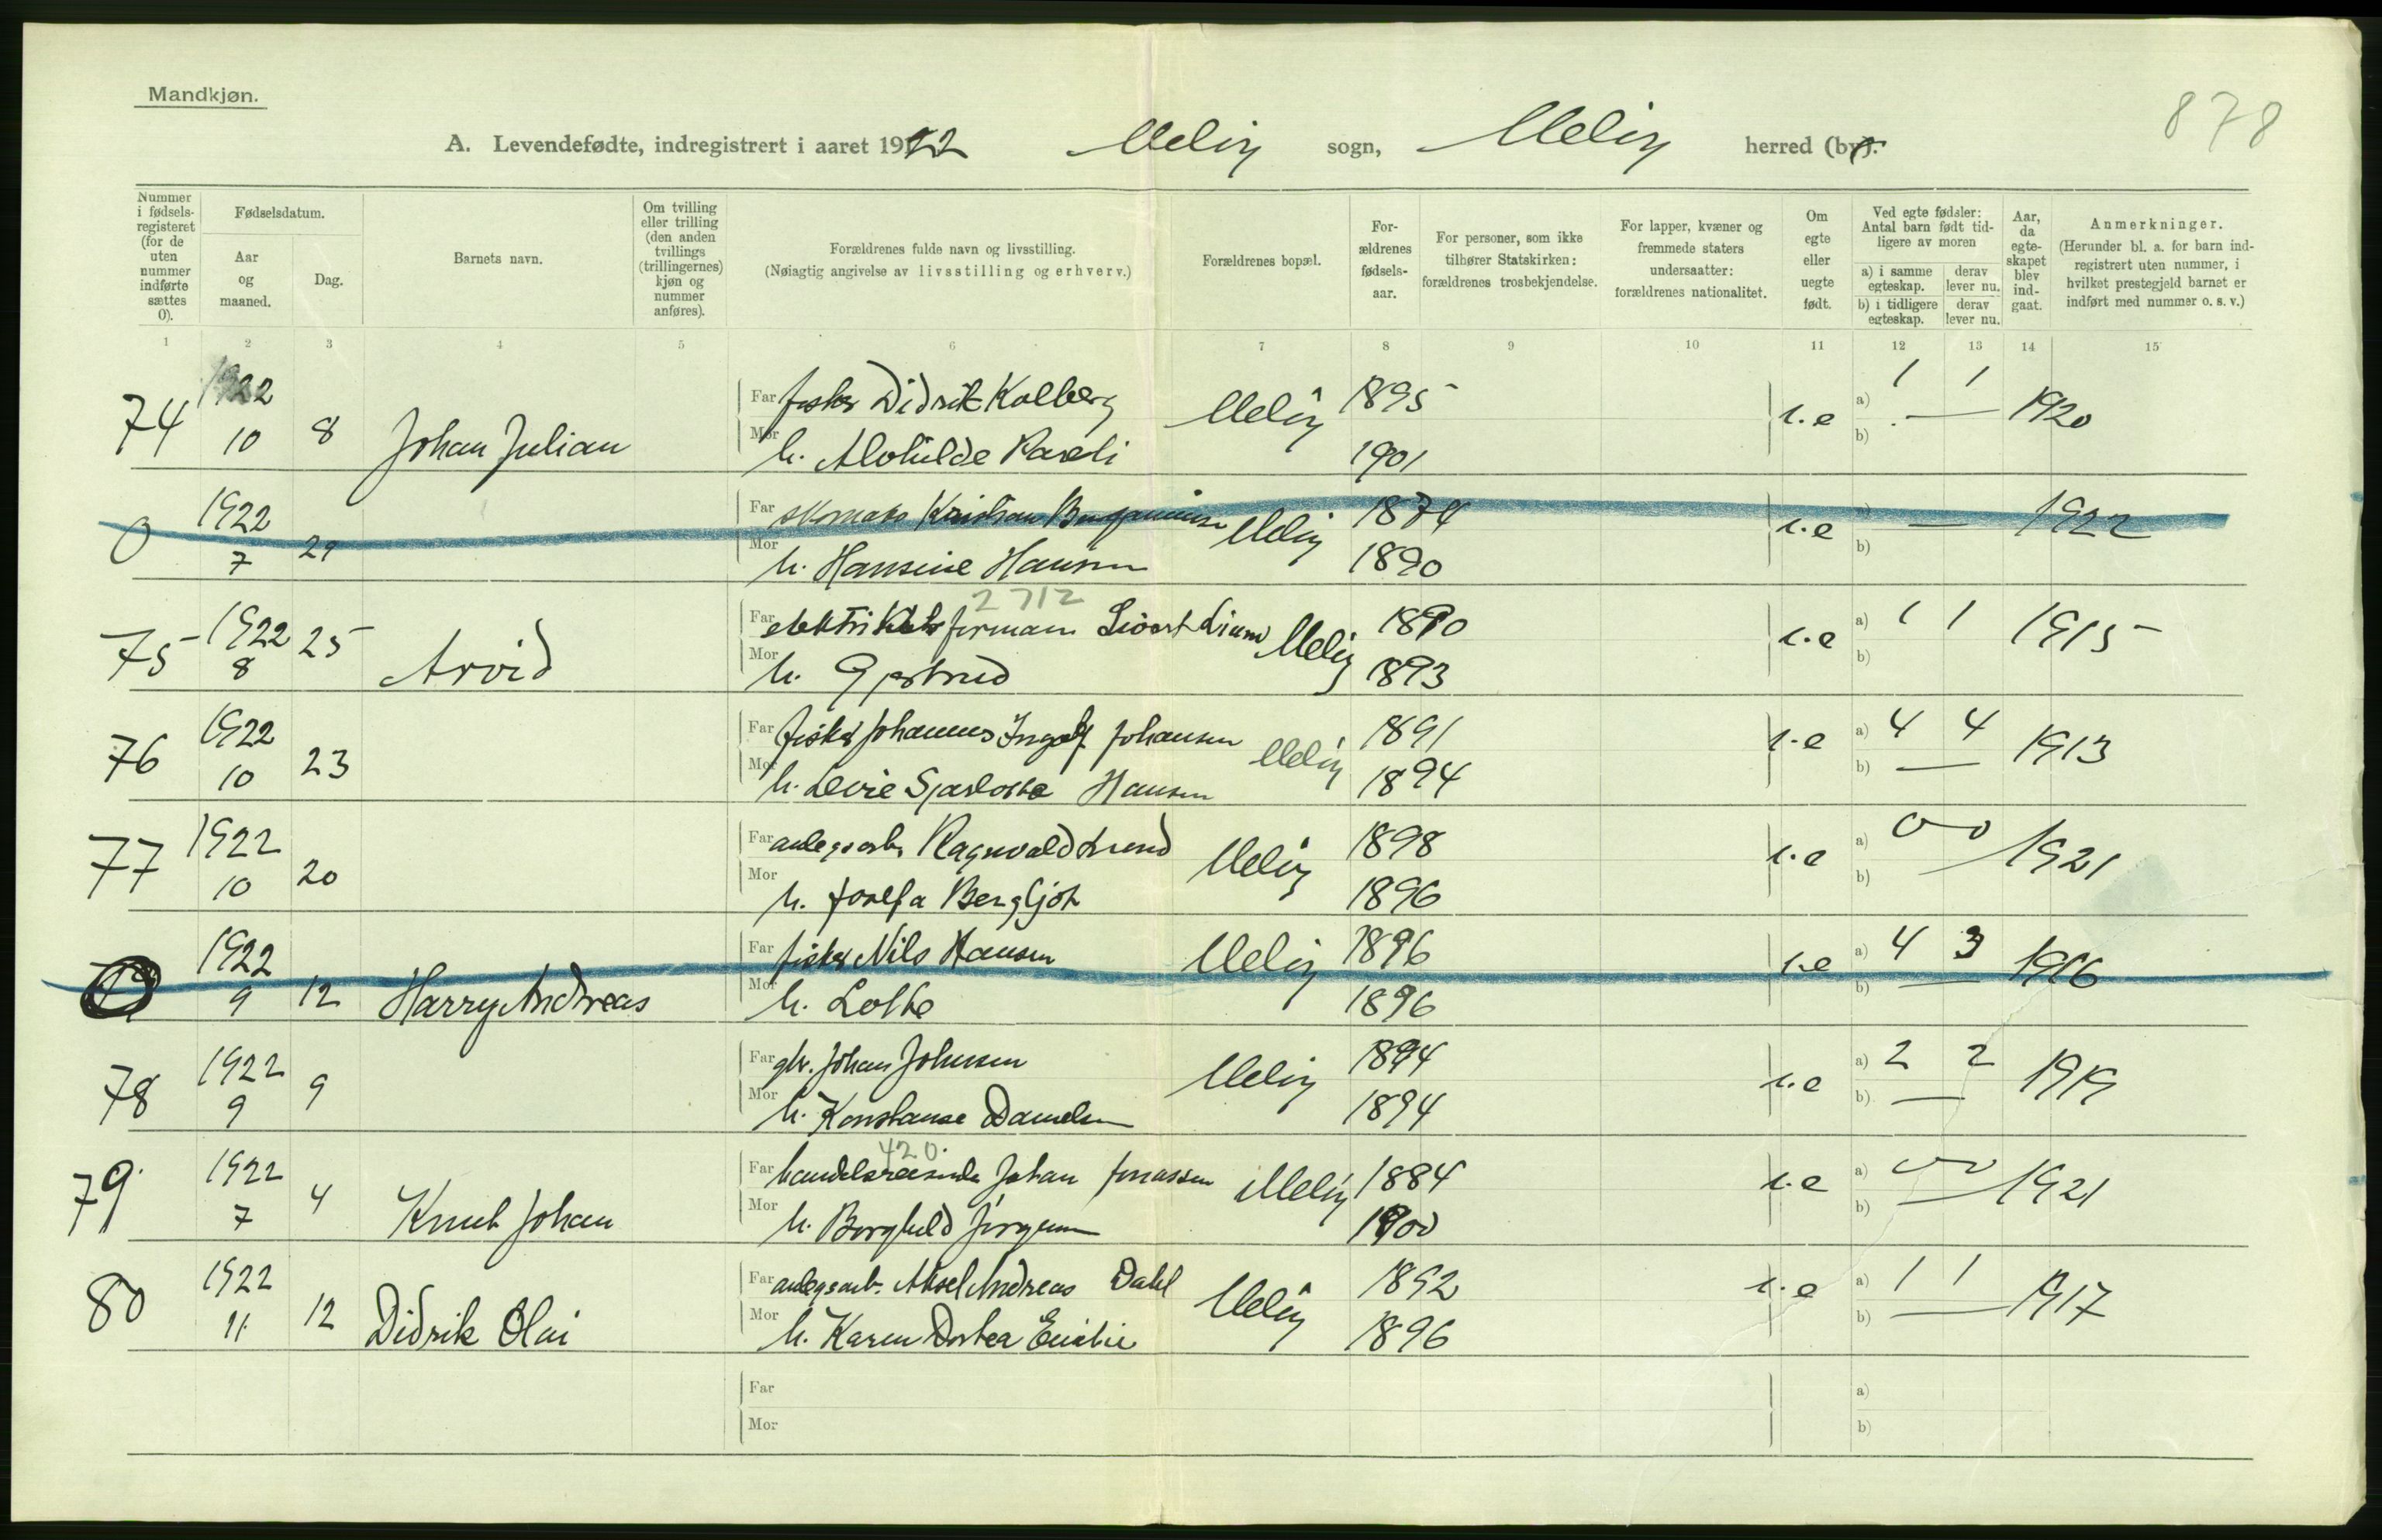 Mandkjøn.
878
A. Levendefødte, indregistrert i aaret 1922 Meløy sogn, Meløy herred (by).
Nummer i fødsels-registeret (for de uten nummer indførte sættes 0).
Fødselsdatum.
Aar og maaned.
Dag.
Barnets navn.
Om tvilling eller trilling (den anden tvillings (trillingernes) kjøn og nummer anføres).
Forældrenes fulde navn og livsstilling.
(Nøiagtig angivelse av livsstilling og erhverv.)
Forældrenes bopæl.
For-ældrenes fødsels-aar.
For personer, som ikke tilhører Statskirken: forældrenes trosbekjendelse.
For lapper, kvæner og fremmede staters undersaatter: forældrenes nationalitet.
Om egte eller uegte født.
Ved egte fødsler: Antal barn født tid-ligere av moren
a) i samme egteskap.
derav lever nu.
b) i tidligere egteskap.
derav lever nu.
Aar, da egte-skapet blev ind-gaat.
Anmerkninger.
(Herunder bl. a. for barn ind-registrert uten nummer, i hvilket prestegjeld barnet er indført med nummer o. s. v.)
1 2 3 4 5 6 7 8 9 10 11 12 13 14 15
74 1922 10 8 Johan Julian Far fisker Didrik Kolberg Meløy 1895 i.e a) 1 1 1920
Mor h. Alvhilde 1901 b) —
0 1922 7 29 Far skomaker Kristian Benjaminsen Meløy 1874 i.e — 1922
Mor h. Hansine Hansen 1890 b)
2712
75 1922 8 25 Arvid Far elektriker forman Sivert Meløy 1890 i.e a) 1 1 1915
Mor h. Gjertrud 1893 b)
76 1922 10 23 Far fisker Johannes Ingolf Johansen Meløy 1891 i.e a) 4 4 1913
Mor h. Hansen 1894 b) —
77 1922 10 20 Far anlegsarb. Ragnvald Meløy 1898 i.e a) 0 0 1921
Mor h. Josefa Bergljot 1896 b) —
0 1922 9 12 Harry Andreas Far fisker Nils Hansen Meløy 1896 i.e a) 4 3 1916
Mor h. Lotte 1896 b) —
78 1922 9 9 Far gbr. Johan Johnsen Meløy 1894 i.e a) 2 2 1919
Mor h. Konstanse Danielsen 1894 b) —
420
79 1922 7 4 Knut Johan Far handelsreisende Johan Jonassen Meløy 1884 i.e a) 0 0 1921
Mor h. Borghild Jørgensen 1900 b) —
80 1922 11 12 Didrik Olai Far anlegsarb. Aksel Andreas Dahl Meløy 1892 i.e a) 1 1 1917
Mor h. Karen Dortea Emilie 1896 b) —
Far a)
Mor b)